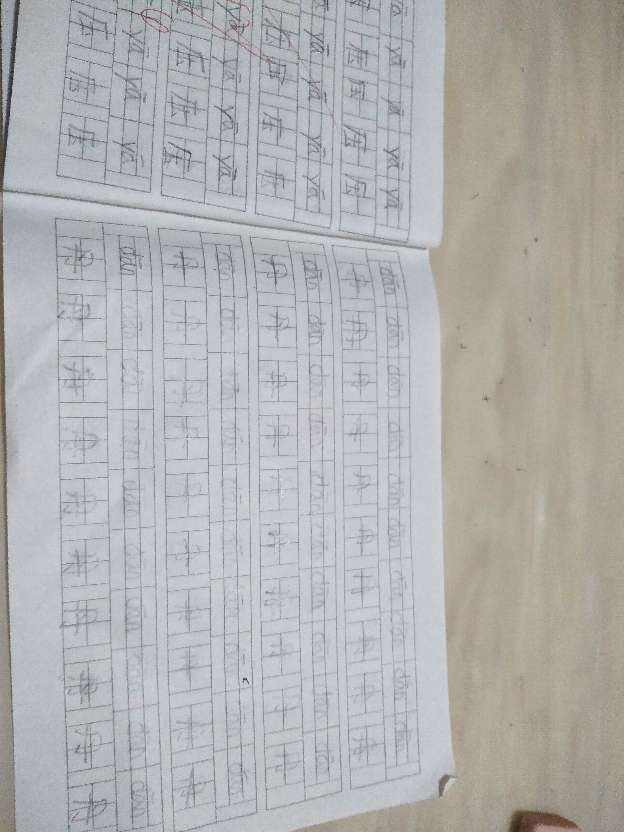 yā yā yā yā
压 压 压 压
yā yā yā yā
压 压 压 压
yā yā yā
压 压 压
yā yā yā
压 压 压
dān dān dān dān dān dān dān dān dān dān
丹 丹 丹 丹 丹 丹 丹 丹 丹 丹
dān dān dān dān dān dān dān dān dān dān
丹 丹 丹 丹 丹 丹 丹 丹 丹 丹
dān dān dān dān dān dān dān dān dān dān
丹 丹 丹 丹 丹 丹 丹 丹 丹 丹
dān dān dān dān dān dān dān dān dān dān
丹 丹 丹 丹 丹 丹 丹 丹 丹 丹